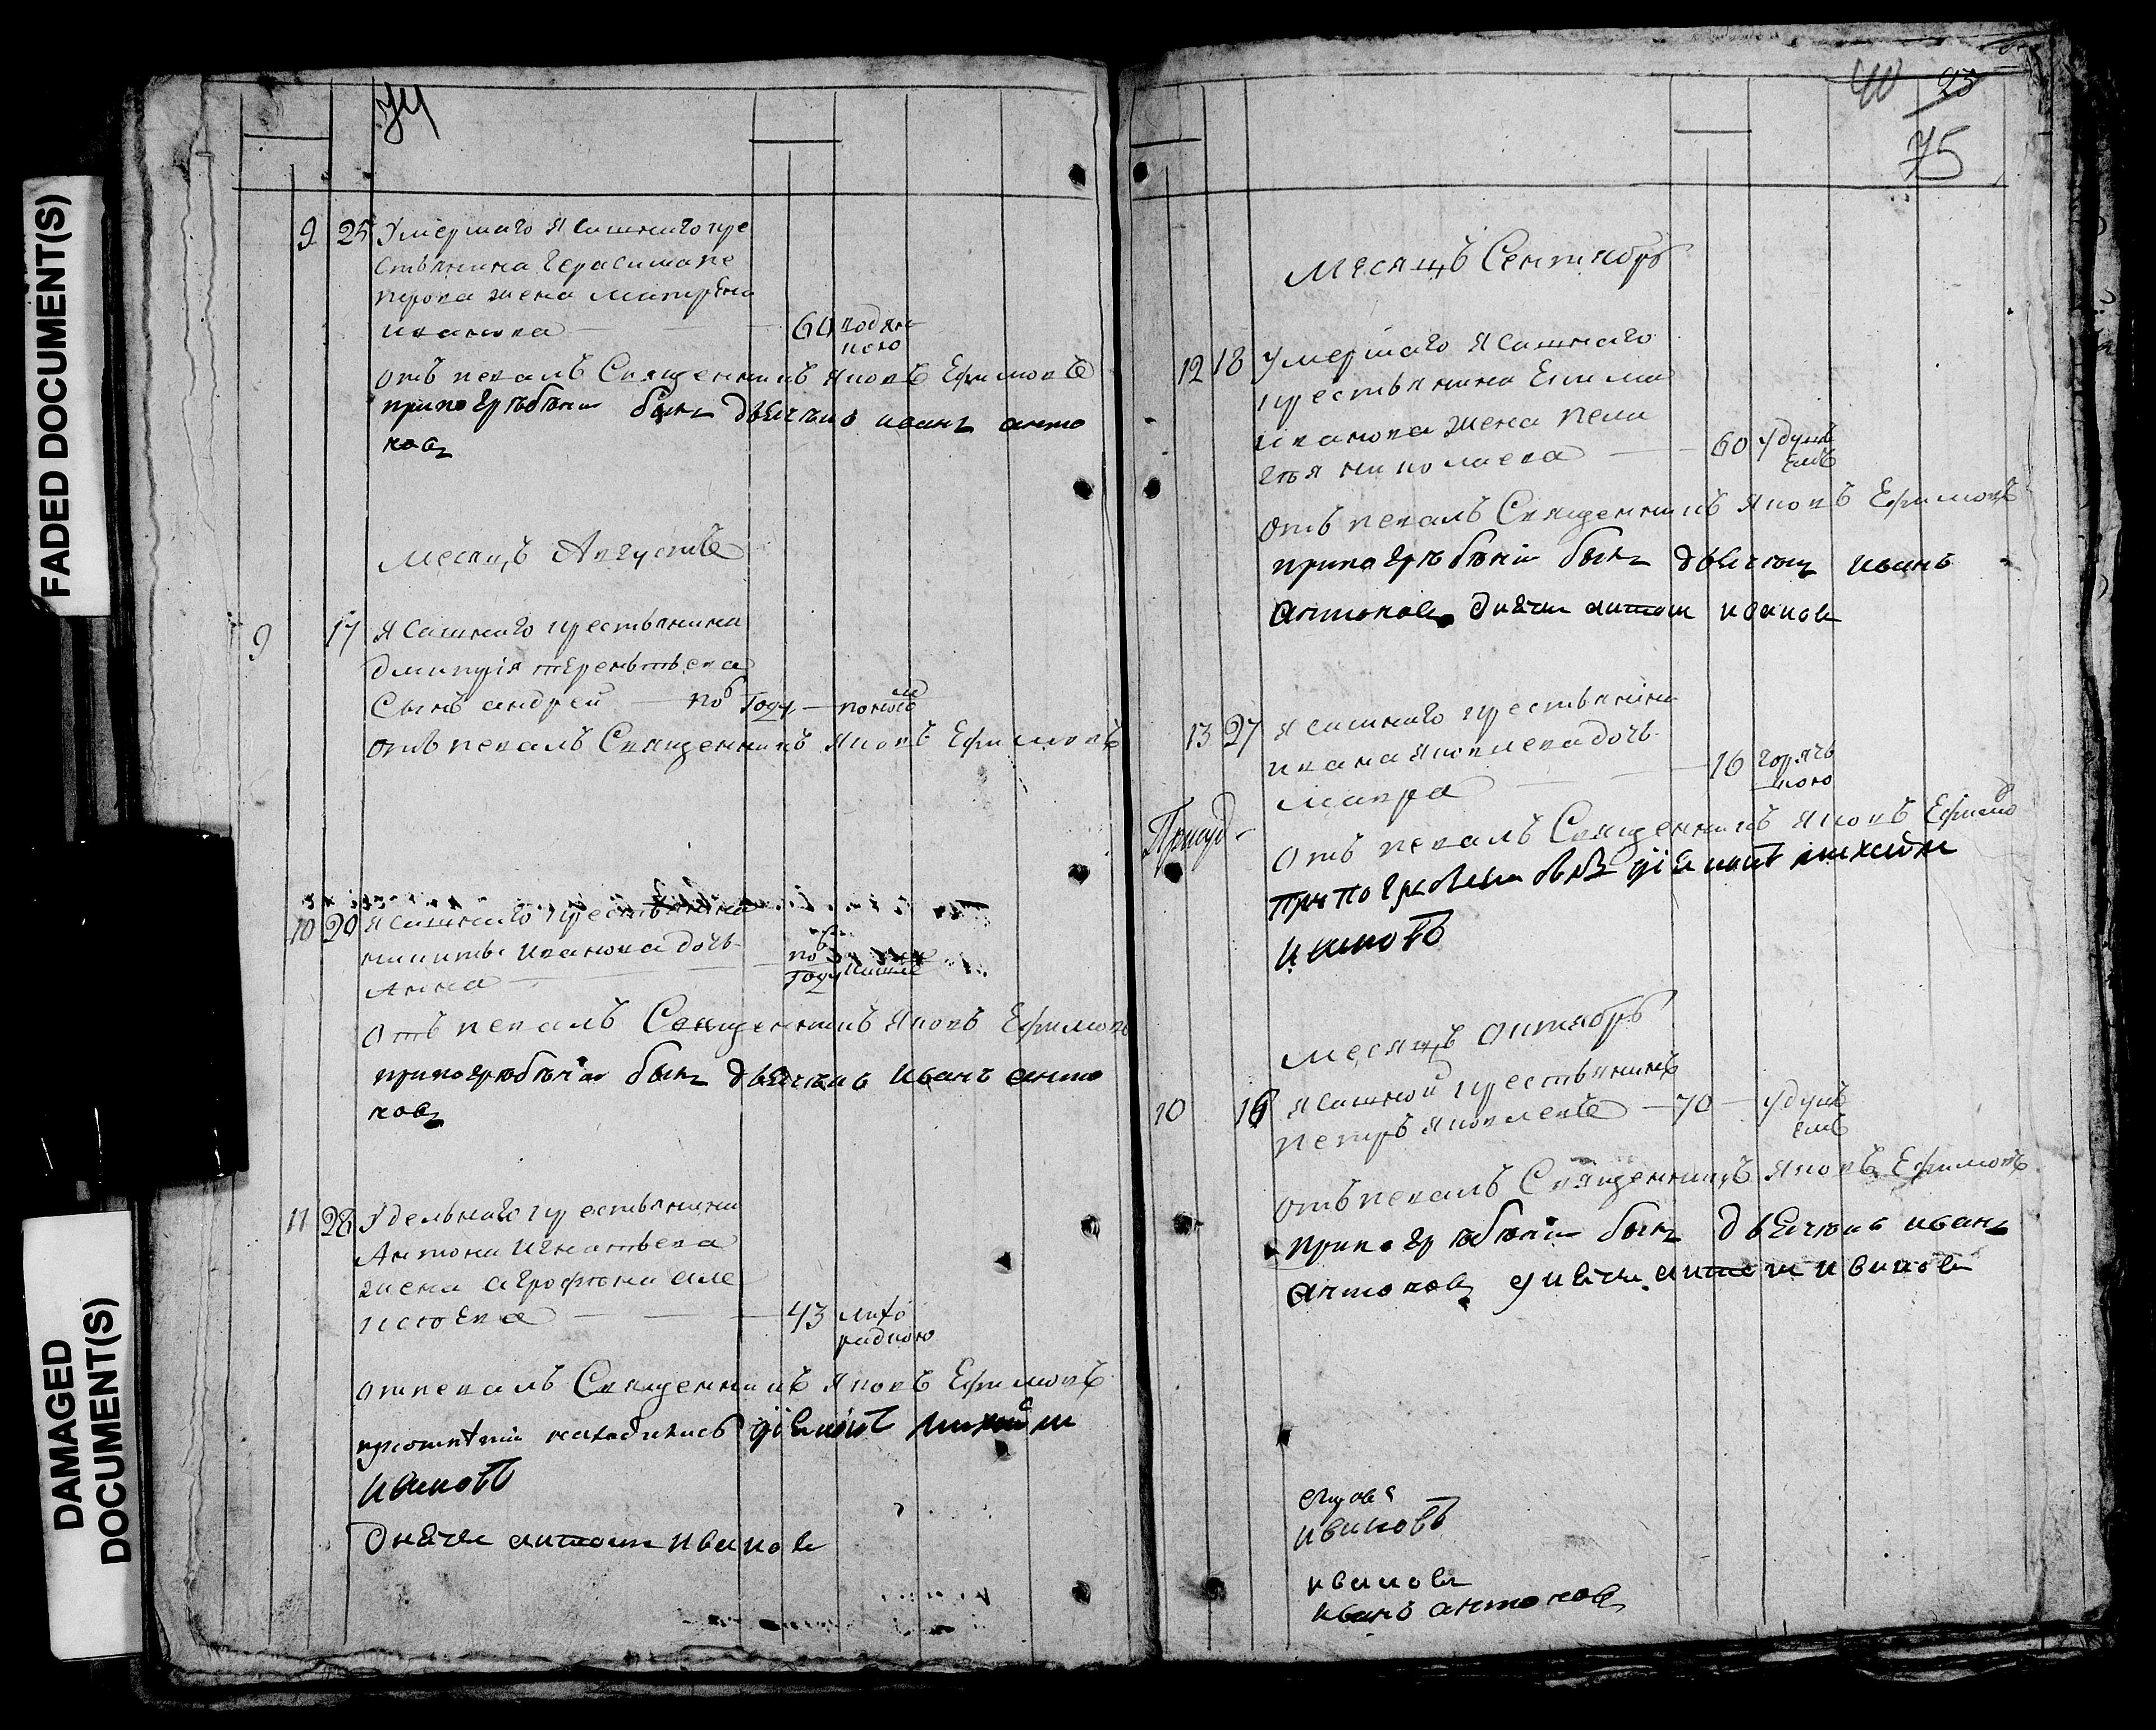 FADED DOCUMENT(S)
DAMAGED
DOCUMENT(S)
74
9 25 Умершаго ясашнаго кре
стьянина Герасима Пе
трова жена Матрена
Иванова — 60 водян
кою
отъ певалъ Священникъ Яковъ Ефимовъ
припогрѣбѣни былъ дьячокъ иванъ анто
новъ
Месяцъ Августъ
9 17 ясашнаго крестьянина
дмитрія терентьева
Сынъ андрей — по б году — поносом
отъ певалъ Священникъ Яковъ Ефимовъ
10 20 ясашнаго крестьянина
никиты Иванова дочь
Анна — по б году
Отъ певалъ Священникъ Яковъ Ефимовъ
припогрѣбѣніи былъ дьячокъ Иванъ анто
новъ
11 28 Удельнаго крестьянина
Антона Игнатьева
жена агрофѣна але
ксѣева — 43 лихо
радкою
отпевалъ Священникъ Яковъ Ефимовъ
находились
ивановъ
антонъ ивановъ
40 23
75
Месяцъ Сентябрь
12 18 Умершаго ясашнаго
крестьянина Ефима
Иванова жена пела
гѣя николаева — 60 удуш
емъ
отъ певалъ Священникъ Яковъ Ефимовъ
припогрѣбѣніи былъ дьячокъ иванъ
антоновъ антонъ ивановъ
13 27 ясашнаго крестьянина
ивана яковлева дочь
мавра — 16 горяч
кою
Отъ певалъ Священникъ Яковъ Ефимо
припогребени былъ
ивановъ
Месяцъ Октябрь
10 16 ясашной крестьянинъ
Петръ Яковлевъ — 70 — удуш
емъ
отъ певалъ Священникъ Яковъ Ефимовъ
припогрѣбѣніи былъ дьячокъ иванъ
антоновъ антонъ ивановъ
ивановъ
ивановъ
иванъ антоновъ